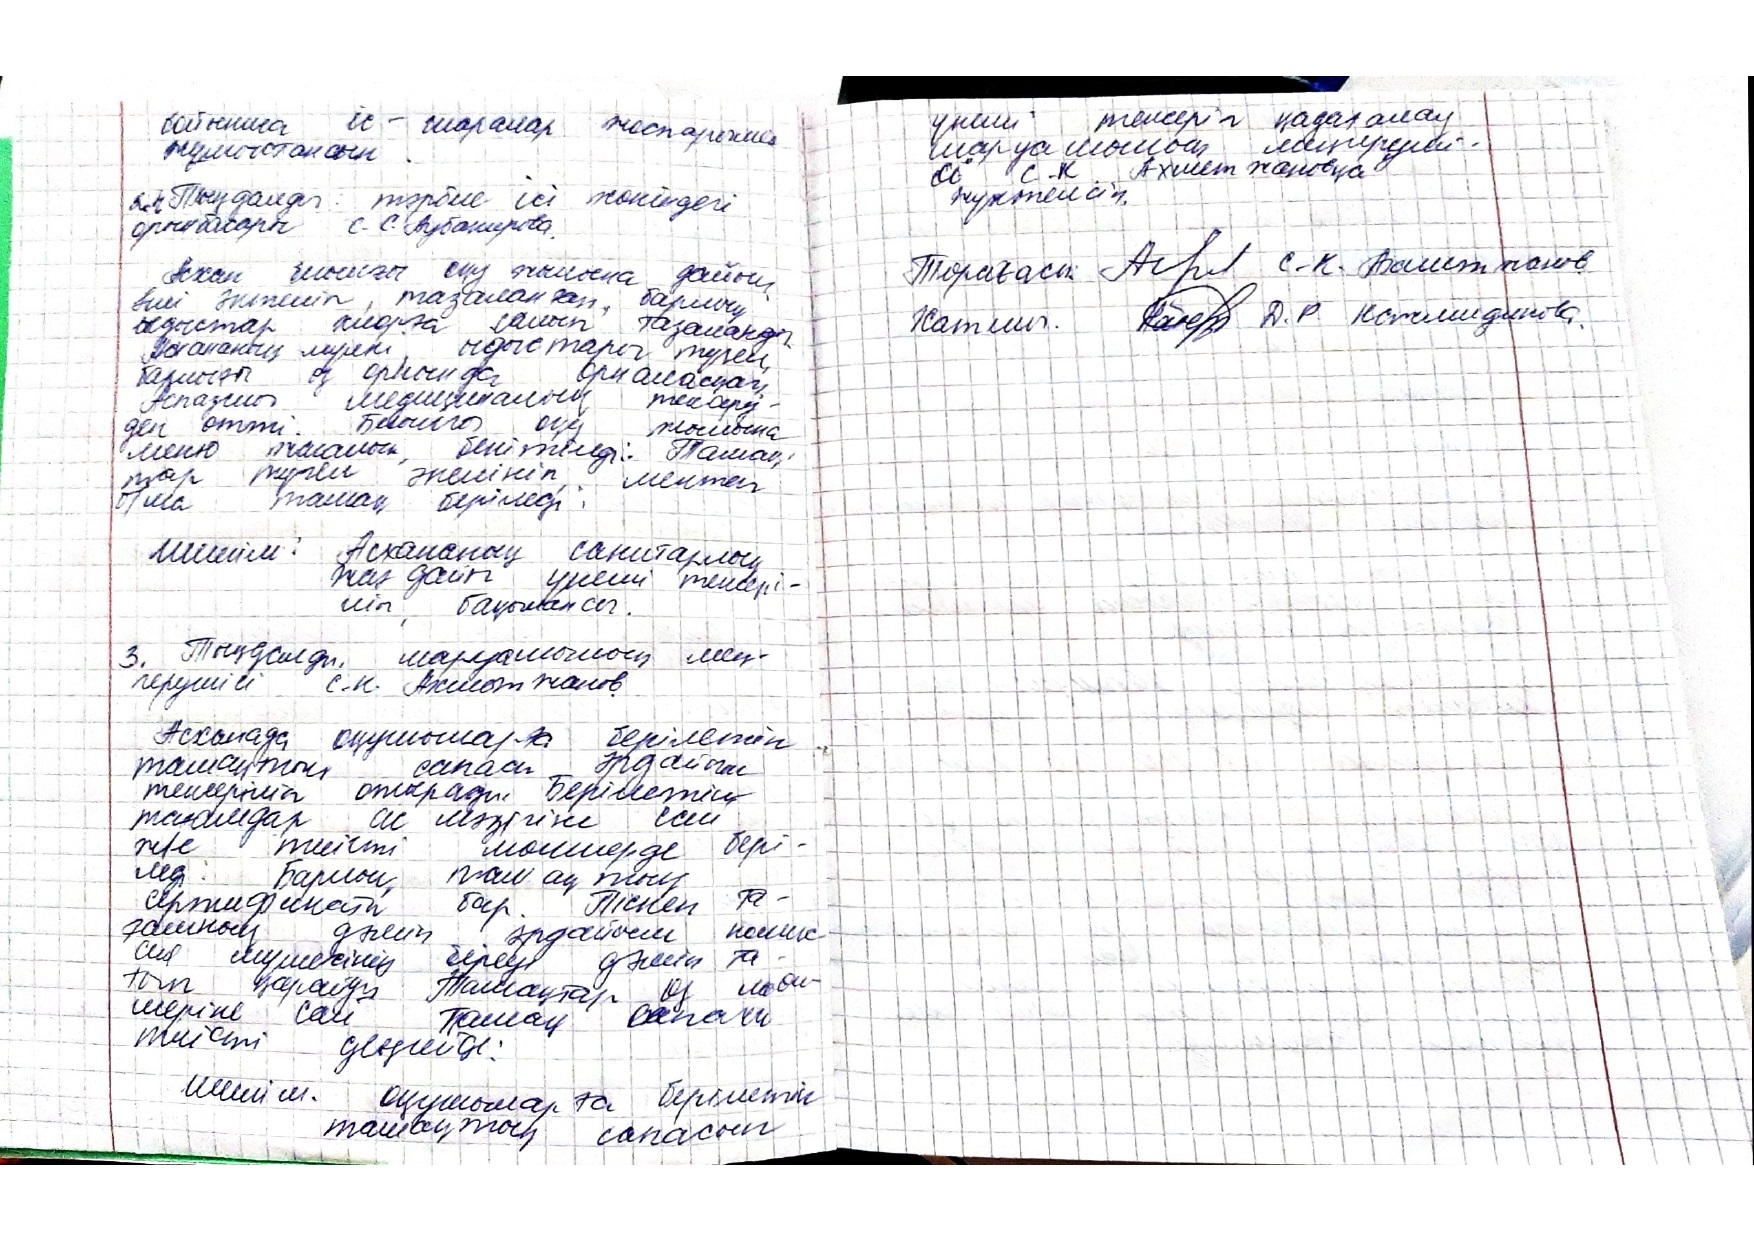 бойынша іс-шаралар жоспарымен
жұмыстансын.
2. Тыңдалды: тәрбие ісі жөніндегі
орынбасары С.С. Аубакирова.
Асхана биылғы оқу жылына дайын
әктеліп, тазаланған, барлық
ыдыстар хлорға салып тазаланды
Асхананың мүлкі, ыдыстары түгел,
барлығы өз орнында орналасқан,
Аспазшы медициналық тексеру-
ден өтті. Биылғы оқу жылына
меню жасалып, бекітілді. Тамақ
тар түгел әкелініп, мектеп
б/ша тамақ беріледі.
Шешім: Асхананың санитарлық
жағдайы үнемі тексері-
ліп, бақылансын.
3. Тыңдалды, шаруашылық мең-
герушісі С.К. Ахметжанов
Асханада оқушыларға берілетін
тамақтың сапасы әрдайым
тексеріліп отырады. Берілетін
тағамдар ас мәзіріне сай
және тиісті мөлшерде бері-
леді. Барлық тамақтың
сертификаты бар. Піскен та-
ғамның дәмін әрдайым комис
сия мүшесінің біреуі дәмін та-
тып қарайды Тамақтар өз мөл-
шеріне сай Тамақ сапасы
тиісті деңгейде.
Шешім. Оқушыларға берілетін
тамақтың сапасын
үнемі тексеріп қадағалау
шаруашылық меңгеруші-
сі С.К Ахметжановқа
жүктелсін.
Төрағасы С.К. Ахметжанов
Хатшы. Д.Р.